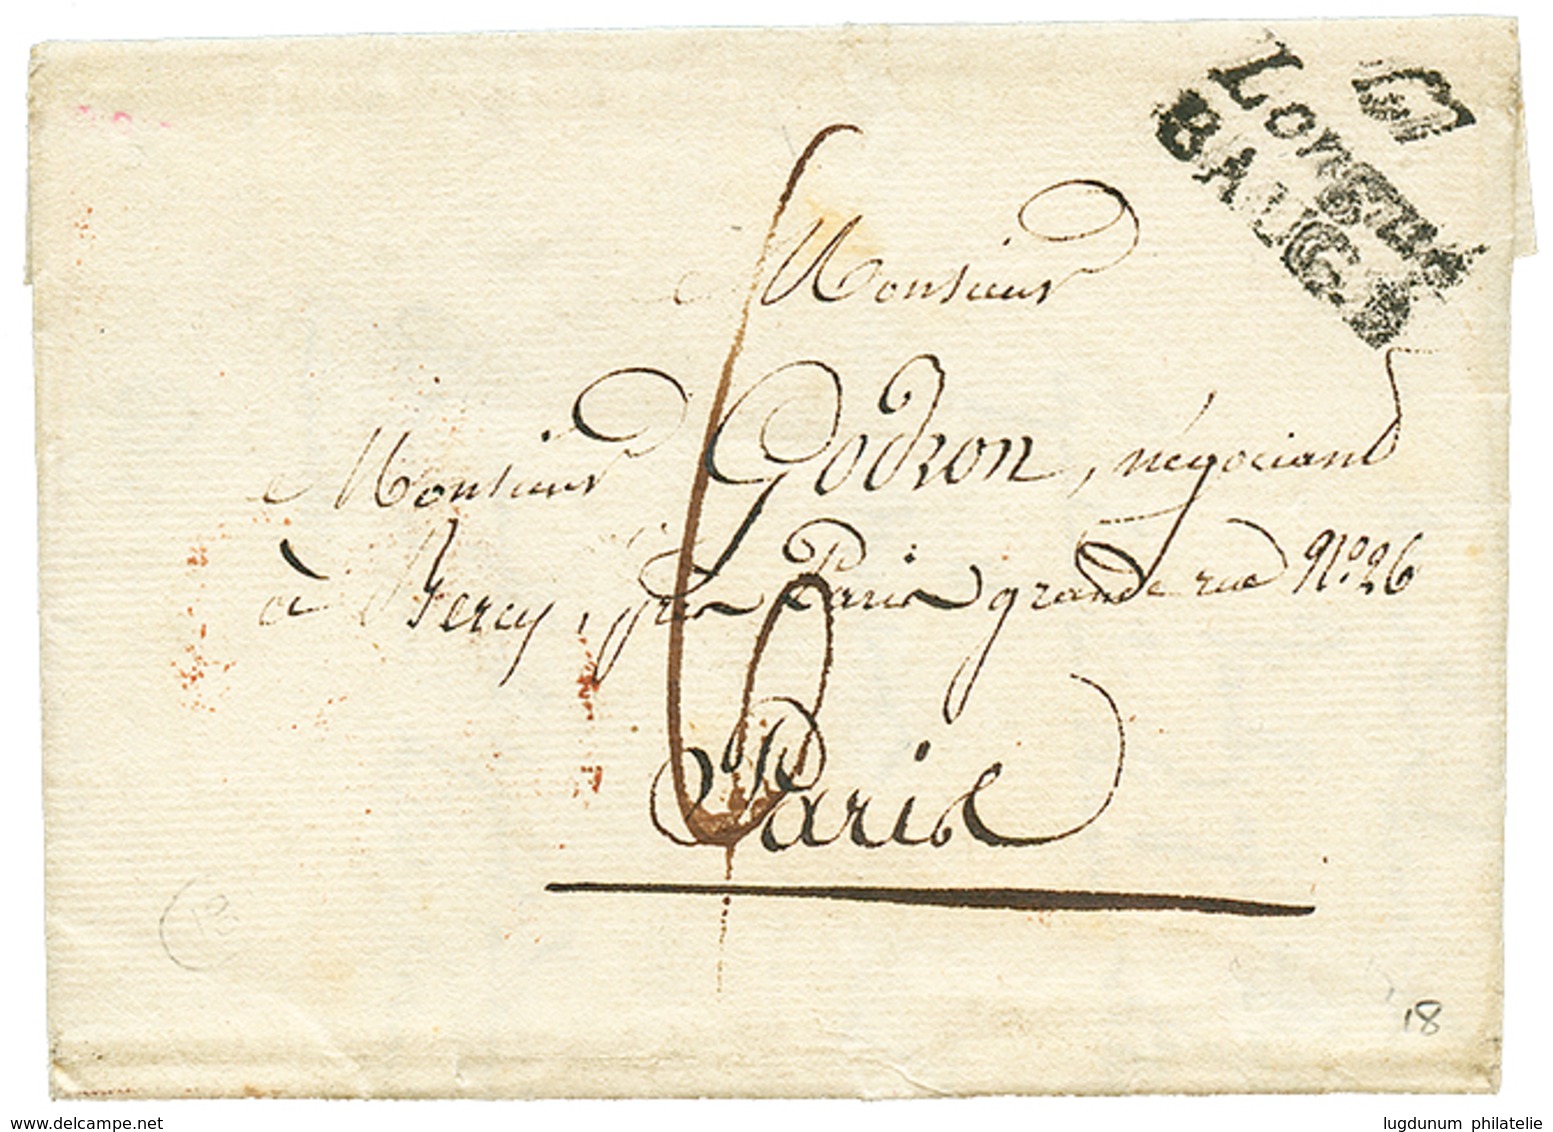 Longué
BAUGÉ
6
Monsieur
Monsieur Godron, négociant
à Bercy, près Paris grande rue No. 26
Paris
18
delcampe.net
lugdunum philatelie